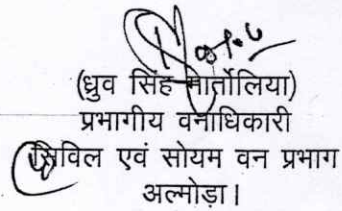 (ध्रुव सिंह मार्तोलिया)
प्रभागीय वनाधिकारी
सिविल एवं सोयम वन प्रभाग
अल्मोड़ा।